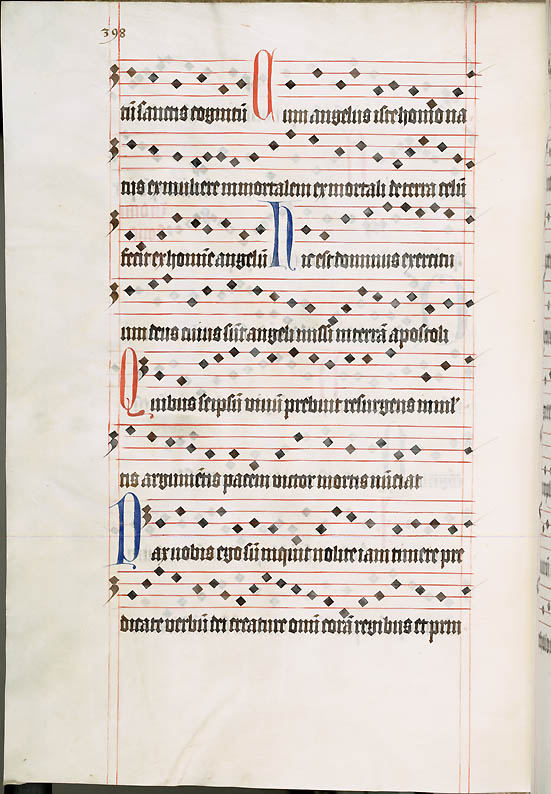 398
tū sanctis cognitū Cum angelus iste homo na
tus ex muliere inmortalem ex mortali de terra celū
fecit ex homīe angelū Hic est dominus exercitu
um deus cuius sūt angeli missi in terrā apostoli
Quibus seipsū vivū prebuit resurgens mul
tis argumētis pacem victor mortis nūciat
Pax vobis ego sū inquit nolite iam timere pre
dicate verbū dei creature omī corā regibus et prin